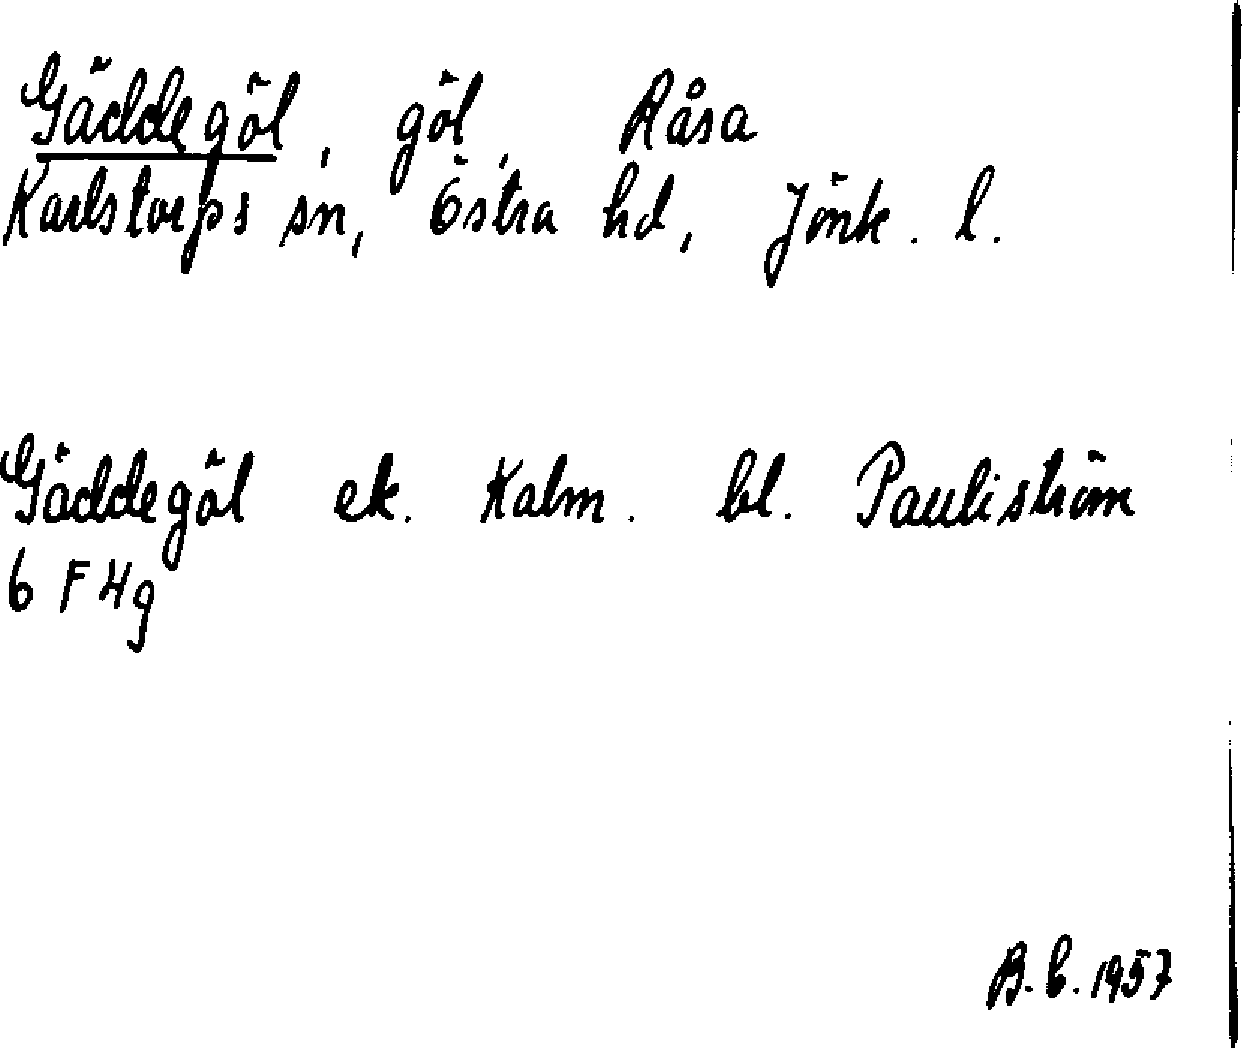 Gäddegöl, göl, Råsa
Karlstorps sn, Östra hd, Jönk. l.
Gäddegöl ek. Kalm. bl. Pauliström
6 F 4g
B. C. 1957